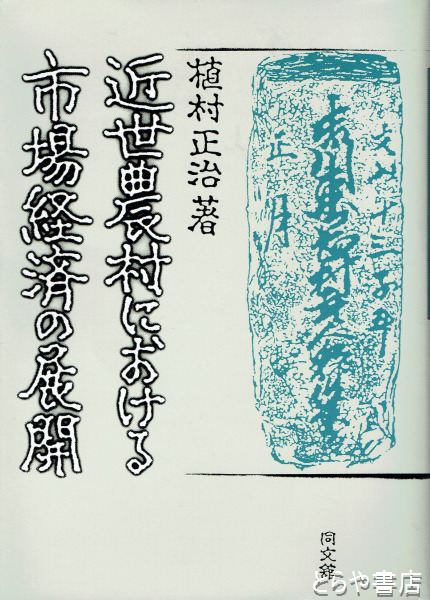 近世農村における
市場経済の展開
植村正治著
正月
同文舘
とらや書店